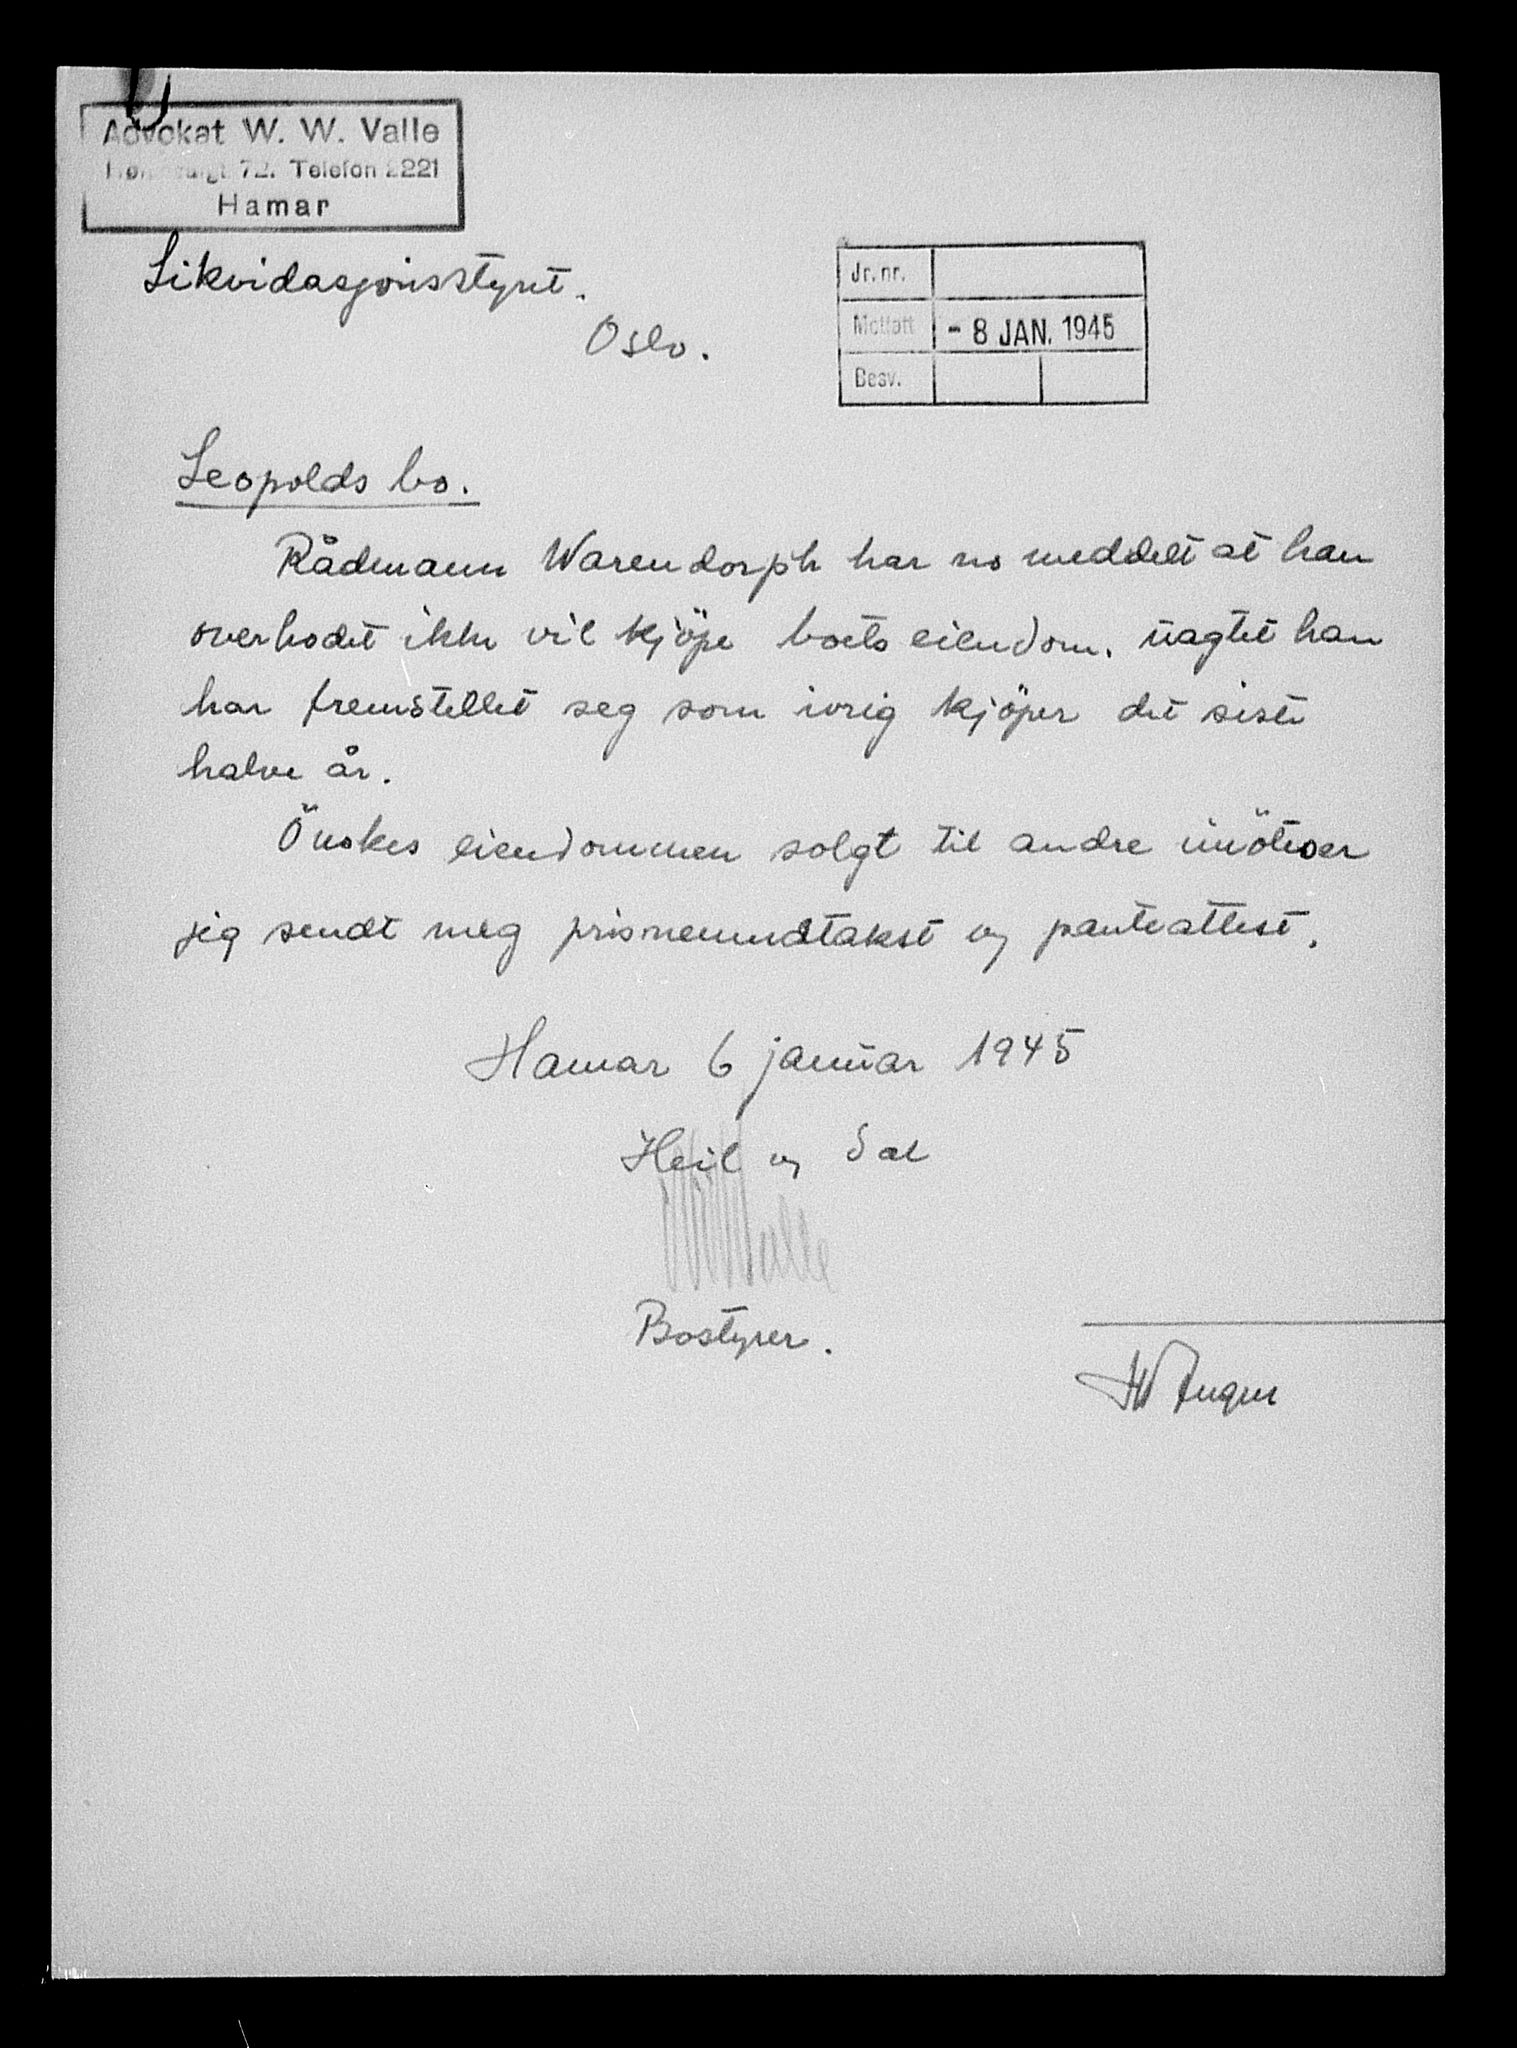 Advokat W. W. Valle
72. Telefon 2221
Hamar
Likvidasjonsstyret.
Oslo.
Jr. nr.
Mottatt - 8 JAN. 1945
Besv.
Leopolds bo.
Rådmann Warendorph har no meddelt at han
overhodet ikke vil kjöpe boets eiendom. uagtet han
har fremstillet seg som ivrig kjöper det siste
halve år.
Önskes eiendommen solgt til andre imöteser
jeg sendt meg prisnemndtakst og panteattest.
Hamar 6 januar 1945
Heil og Sæl
WWValle
Bostyrer.